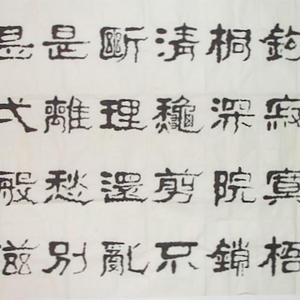 鉤寂寞梧
桐深院鎖
清龝剪不
斷理還亂
是離愁別
是弌般滋